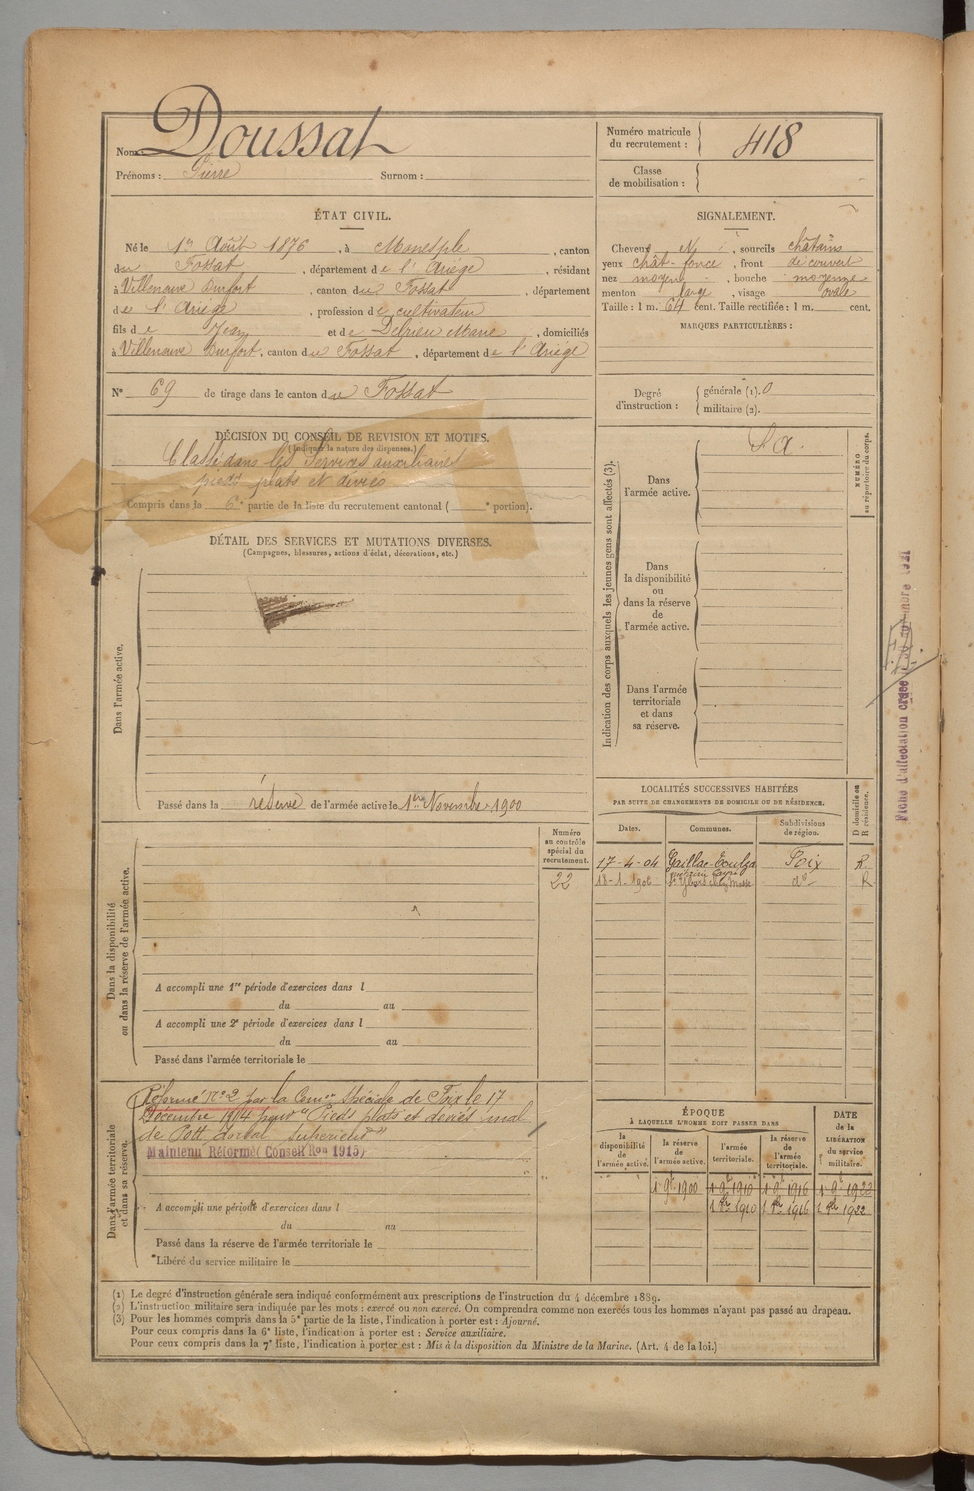 Nom : Doussat
Prénoms : Pierre Surnom :
Numéro matricule du recrutement : 418
Classe de mobilisation :
ÉTAT CIVIL.
Né le 1er Août 1876, à Manesple, canton
du Fossat, département de l'Ariège, résidant
à Villeneuve Durfort, canton du Fossat, département
de l'Ariège, profession de cultivateur
fils de Jean et de Delrieu Marie, domiciliés
à Villeneuve Durfort, canton du Fossat, département de l'Ariège
N° 69 de tirage dans le canton du Fossat
SIGNALEMENT.
Cheveux N, sourcils châtains
yeux chât-foncé, front découvert
nez moyen, bouche moyenne
menton large, visage ovale
Taille : 1 m. 64 cent. Taille rectifiée : 1 m. cent.
MARQUES PARTICULIÈRES :
Degré d'instruction : générale (1). 0
militaire (2).
DÉCISION DU CONSEIL DE REVISION ET MOTIFS.
(Indiquer la nature des dispenses.)
Classé dans les Services auxiliaires
pieds plats et déviés
Compris dans la 6e partie de la liste du recrutement cantonal ( e portion).
DÉTAIL DES SERVICES ET MUTATIONS DIVERSES.
(Campagnes, blessures, actions d'éclat, décorations, etc.)
Dans l'armée active.
Passé dans la réserve de l'armée active le 1er Novembre 1900
Indication des corps auxquels les jeunes gens sont affectés (3).
Dans l'armée active.
S a.
NUMÉRO au répertoire du corps.
Dans la disponibilité ou dans la réserve de l'armée active.
Dans l'armée territoriale et dans sa réserve.
Fiche d'affectation créée novembre 1921
LOCALITÉS SUCCESSIVES HABITÉES
PAR SUITE DE CHANGEMENTS DE DOMICILE OU DE RÉSIDENCE.
Dates. Communes. Subdivisions de région. D domicile ou R résidence.
17-4-04 Gaillac-Toulza Foix R
18-1-1906 St Ybars chez Masse do R
Numéro au contrôle spécial du recrutement.
22
Dans la disponibilité ou dans la réserve de l'armée active.
A accompli une 1re période d'exercices dans l
du au
A accompli une 2e période d'exercices dans l
du au
Passé dans l'armée territoriale le
Dans l'armée territoriale et dans sa réserve.
Réformé n°2 par la Comon Spéciale de Foix le 17
Décembre 1914 pour "Pieds plats et déviés mal
de Pott dorsal supérieur"
Maintenu Réformé (Conseil Ron 1915)
A accompli une période d'exercices dans l
du au
Passé dans la réserve de l'armée territoriale le
Libéré du service militaire le
ÉPOQUE
À LAQUELLE L'HOMME DOIT PASSER DANS
la disponibilité de l'armée active. la réserve de l'armée active. l'armée territoriale. la réserve de l'armée territoriale.
DATE de la LIBÉRATION du service militaire.
1 9b 1900 1 9b 1910 1 9b 1916 1 9b 1922
1 8b 1910 1 8b 1916 1 8b 1922
(1) Le degré d'instruction générale sera indiqué conformément aux prescriptions de l'instruction du 4 décembre 1889.
(2) L'instruction militaire sera indiquée par les mots : exercé ou non exercé. On comprendra comme non exercés tous les hommes n'ayant pas passé au drapeau.
(3) Pour les hommes compris dans la 5e partie de la liste, l'indication à porter est : Ajourné.
Pour ceux compris dans la 6e liste, l'indication à porter est : Service auxiliaire.
Pour ceux compris dans la 7e liste, l'indication à porter est : Mis à la disposition du Ministre de la Marine. (Art. 4 de la loi.)